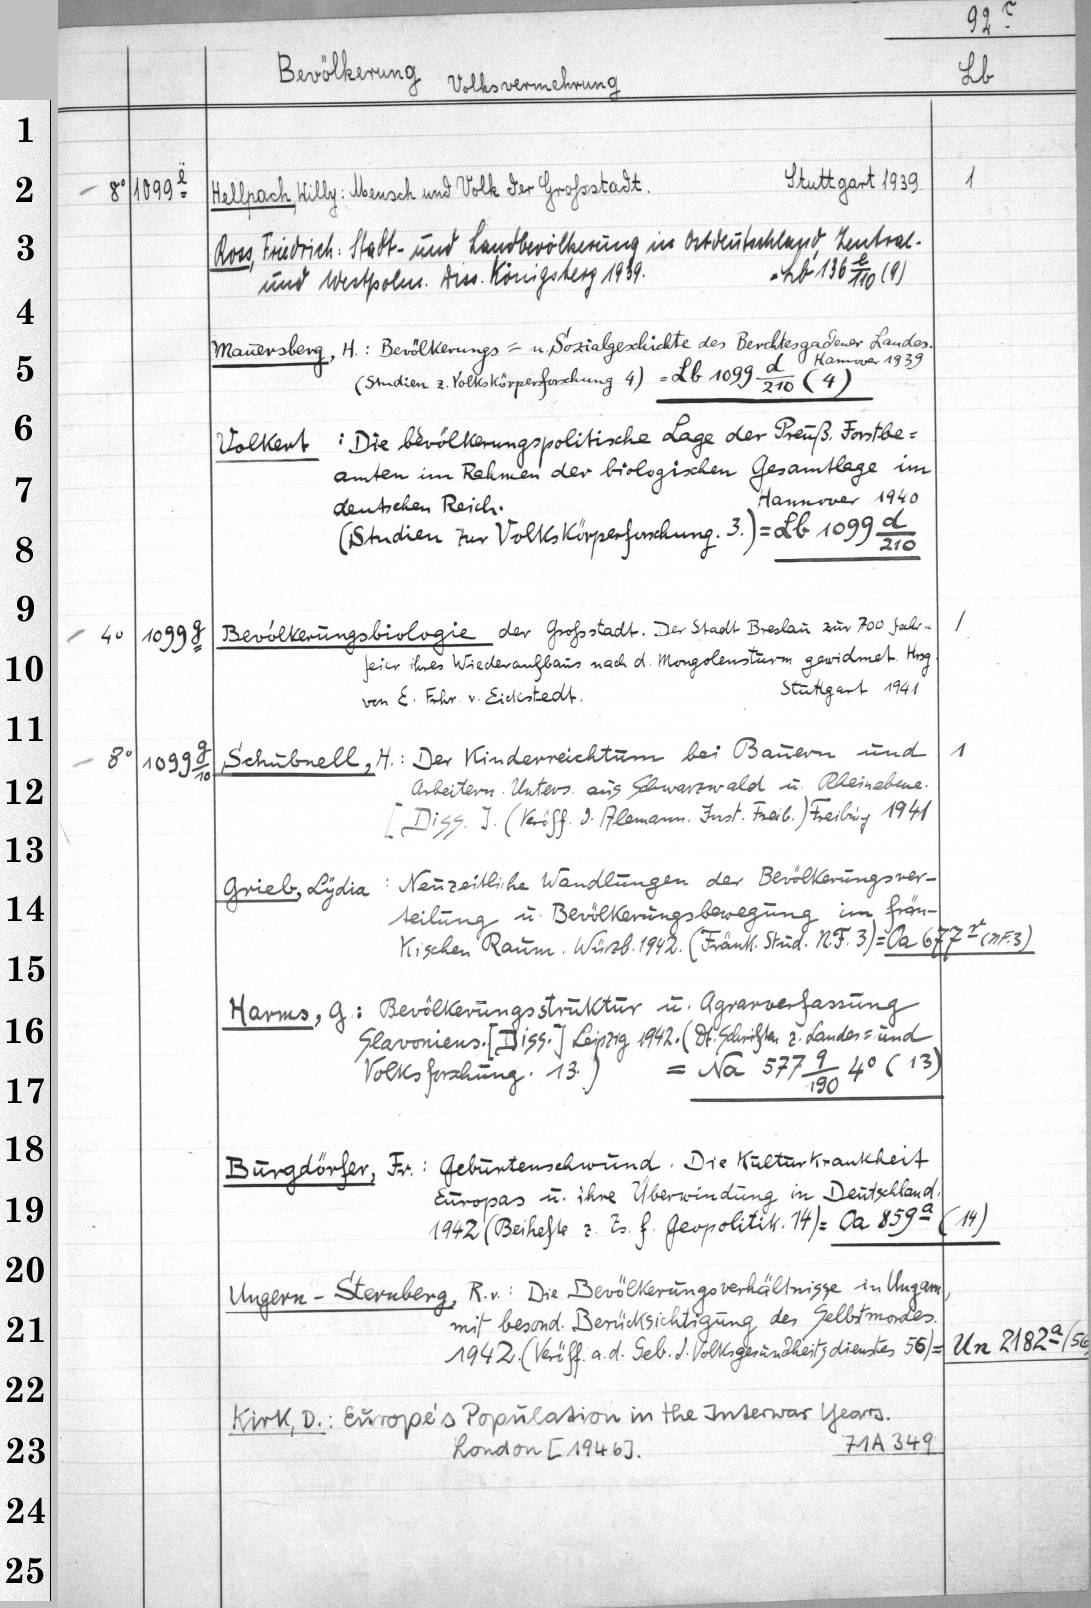 92 r
Bevölkerung Volksvermehrung Lb
1
2 8° 1099 Hellpach, Willy: Mensch und Volk der Großstadt. Stuttgart 1939 1
3 Ross, Friedrich: Stadt- und Landbevölkerung in Ostdeutschland, Zentral-
und Westpolen. Diss. Königsberg 1939. =Lb 136 l/110 (9)
4
Mauersberg, H.: Bevölkerungs= u. Sozialgeschichte des Berchtesgadener Landes.
5 Hannover 1939
(Studien z. Volkskörperforschung 4) =Lb 1099 d/210 (4)
6 Volkert : Die bevölkerungspolitische Lage der Preuß. Forstbe=
amten im Rahmen der biologischen Gesamtlage im
7 deutschen Reich. Hannover 1940
8 (Studien zur Volkskörperforschung. 3.) = Lb 1099 d/210
9
4° 1099 g Bevölkerungsbiologie der Großstadt. Der Stadt Breslau zur 700 Jahr-
10 feier ihres Wiederaufbaus nach d. Mongolensturm gewidmet. Hrsg.
von E. Frhr. v. Eickstedt. Stuttgart 1941
11
8° 1099 g/10 Schubnell, H.: Der Kinderreichtum bei Bauern und 1
12 Arbeitern. Unters. aus Schwarzwald u. Rheinebene.
[Diss.]. (Veröff. d. Alemann. Inst. Freib.) Freiburg 1941
13
Grieb, Lydia : Neuzeitliche Wandlungen der Bevölkerungsver-
14 teilung u. Bevölkerungsbewegung im frän-
kischen Raum. Würzb. 1942. (Fränk. Stud. N.F. 3) = Oa 677 r (N.F.3)
15
Harms, G.: Bevölkerungsstruktur u. Agrarverfassung
16 Slavoniens. [Diss.] Leipzig 1942. (Dt. Schriften z. Landes= und
Volksforschung. 13.) = Na 577 q/190 4° (13)
17
18 Burgdörfer, Fr.: Geburtenschwund. Die Kulturkrankheit
Europas u. ihre Überwindung in Deutschland.
19 1942 (Beihefte z. Zs. f. Geopolitik. 14) = Oa 859 a (14)
20
Ungern-Sternberg, R. v.: Die Bevölkerungsverhältnisse in Ungarn,
21 mit besond. Berücksichtigung des Selbstmordes.
1942. (Veröff. a. d. Geb. d. Volksgesundheitsdienstes 56) = Un 2182 a (56
22
Kirk, D.: Europe's Population in the Interwar Years.
23 London [1946]. 71 A 349
24
25